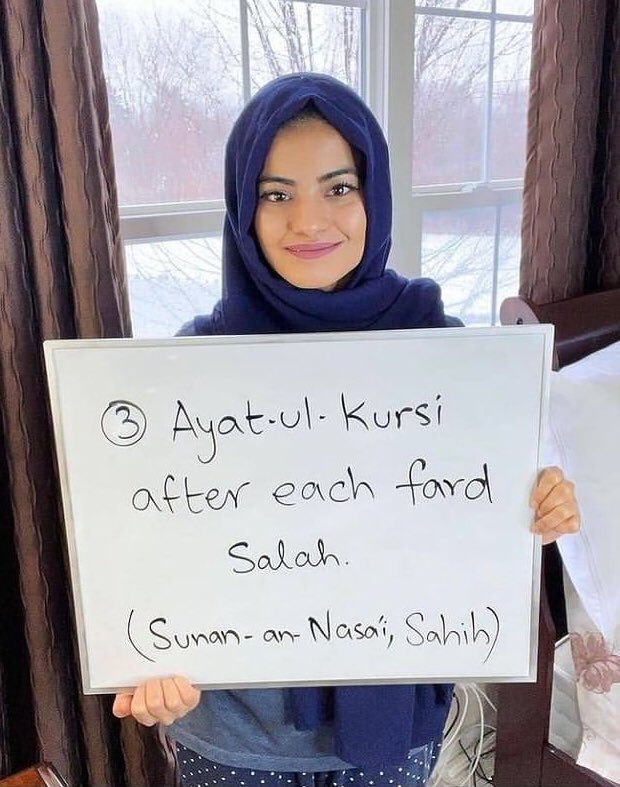 ③ Ayat-ul-Kursi
after each fard
Salah.
(Sunan-an-Nasa'i, Sahih)